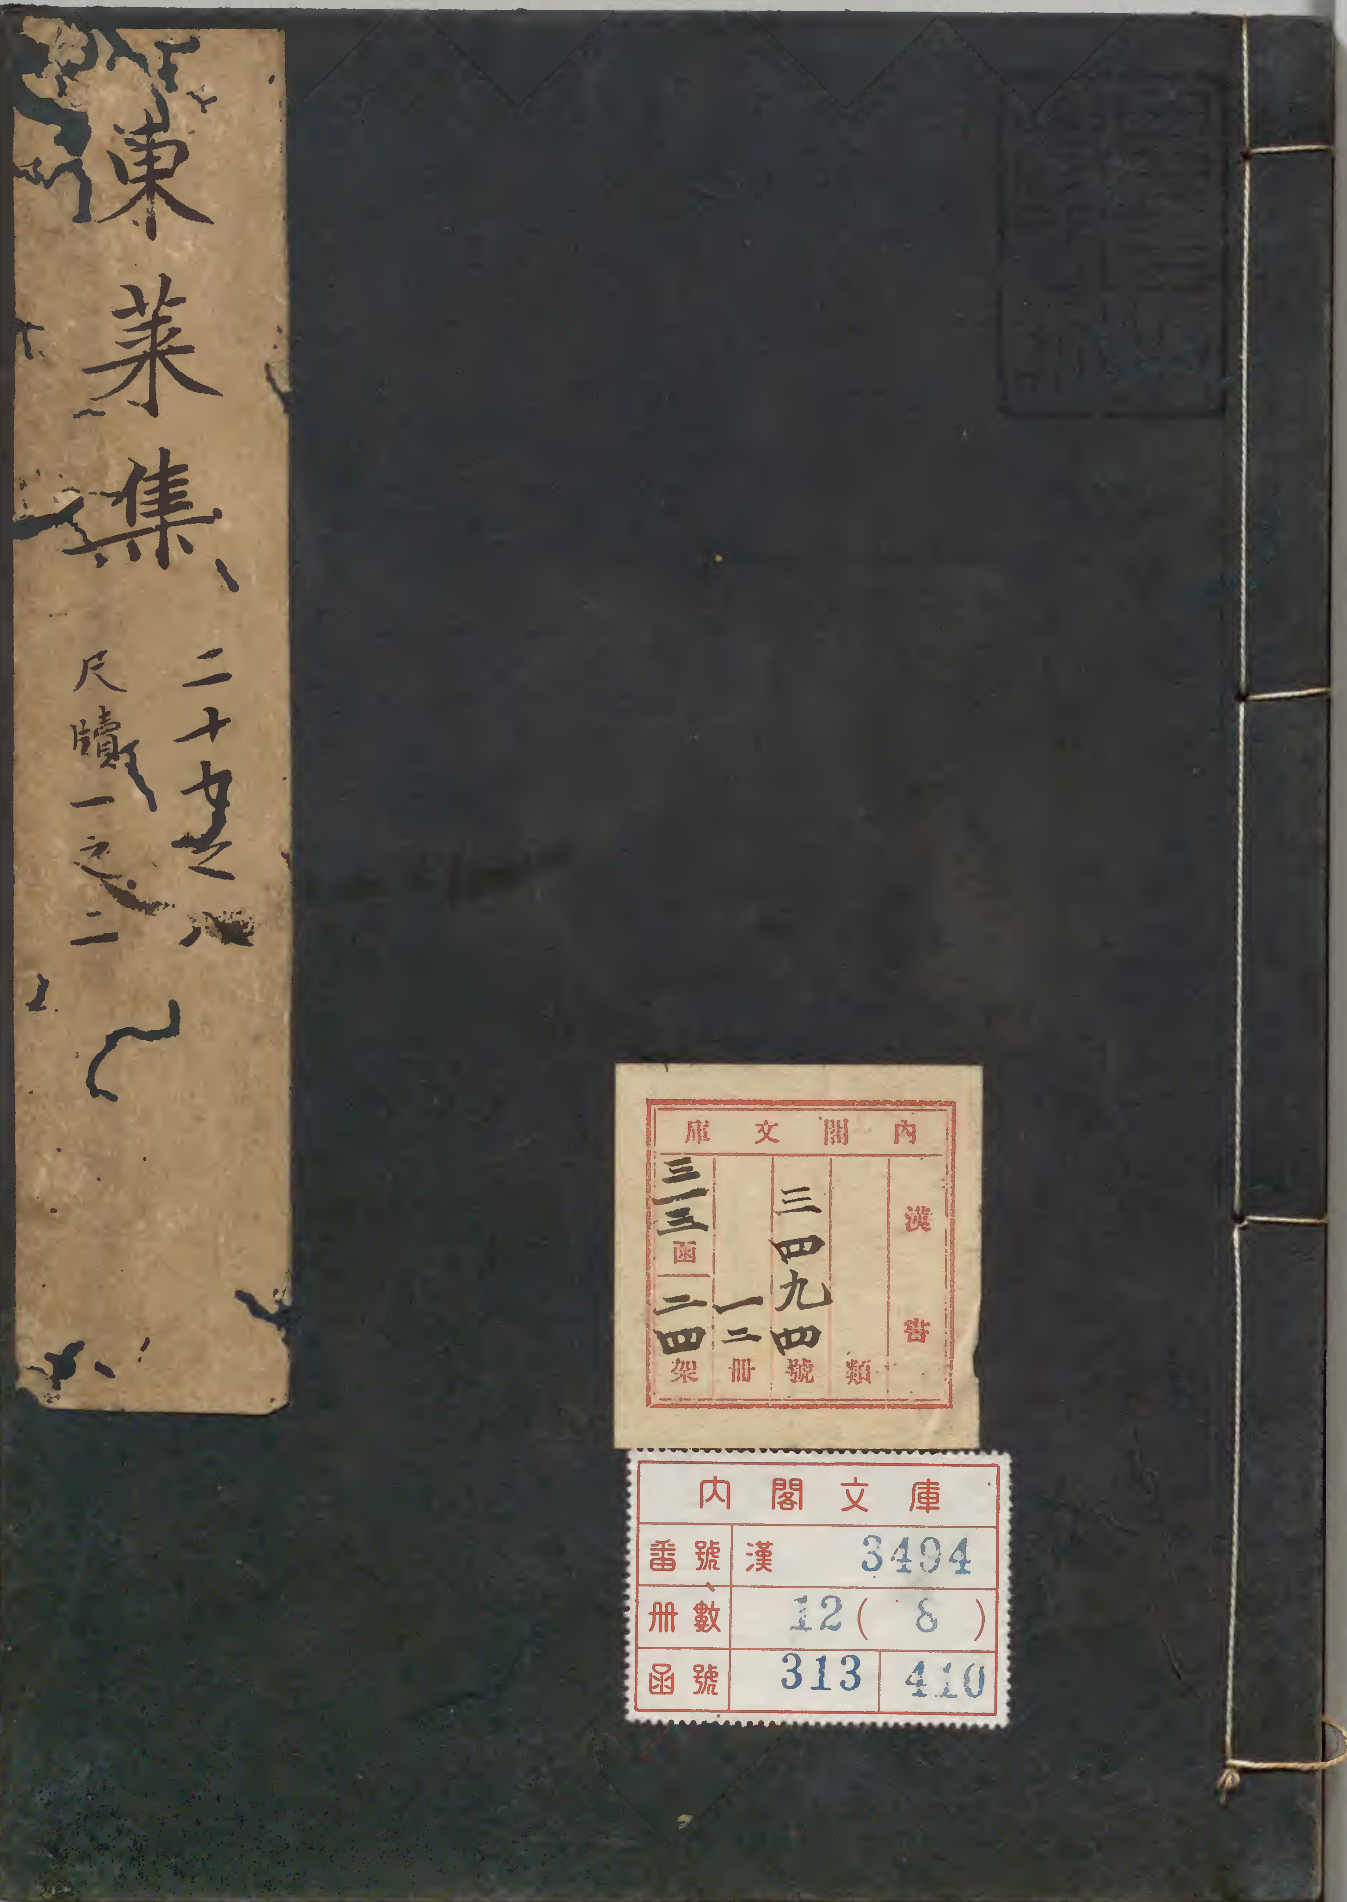 東萊集
二十 之八
尺牘一之二
內閣文庫
漢書
類
三四九四號
一二冊
三一三函
二四架
內閣文庫
番號 漢 3494
冊數 12(8)
函號 313 410